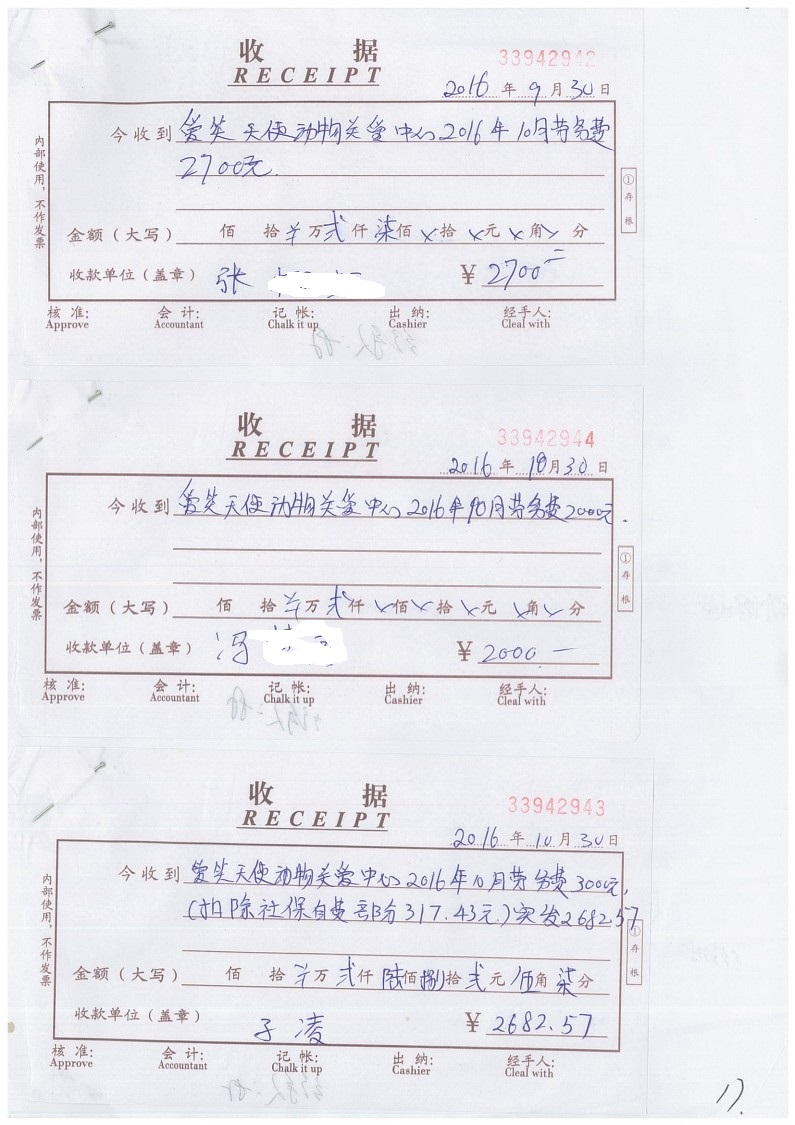 收 据
33942942
RECEIPT
2016 年 9 月 30 日
今收到 爱笑天使动物关爱中心2016年10月劳务费
2700元
金额（大写） 佰 拾 万 贰 仟 柒 佰 拾 元 角 分
收款单位（盖章） 张
￥ 2700
核 准: 会 计: 记 帐: 出 纳: 经手人:
Approve Accountant Chalk it up Cashier Cleal with
内部使用，不作发票
① 存根
收 据
33942944
RECEIPT
2016 年 10 月 30 日
今收到 爱笑天使动物关爱中心2016年10月劳务费2000元.
金额（大写） 佰 拾 万 贰 仟 佰 拾 元 角 分
收款单位（盖章） 冯
￥ 2000
核 准: 会 计: 记 帐: 出 纳: 经手人:
Approve Accountant Chalk it up Cashier Cleal with
内部使用，不作发票
① 存根
收 据
33942943
RECEIPT
2016 年 10 月 30 日
今收到 爱笑天使动物关爱中心2016年10月劳务费3000元,
(扣除社保自费部分317.43元)实发2682.57
金额（大写） 佰 拾 万 贰 仟 陆 佰 捌 拾 贰 元 伍 角 柒 分
收款单位（盖章） 子凌
￥ 2682.57
核 准: 会 计: 记 帐: 出 纳: 经手人:
Approve Accountant Chalk it up Cashier Cleal with
内部使用，不作发票
① 存根
17.